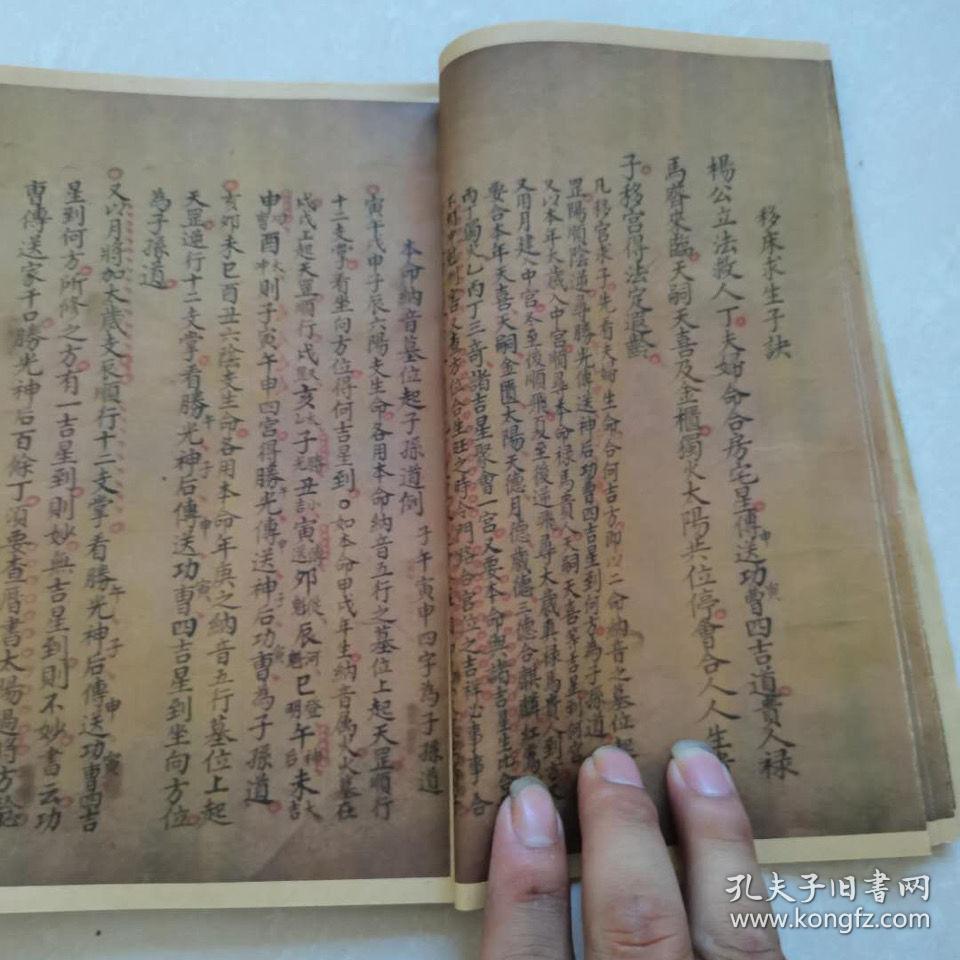 移床求生子訣
楊公立法救人丁夫妇命合房宅星傳送功曹四吉道貴人禄
申寅
馬齊來臨天嗣天喜及金櫃獨火太陽共位停會合人人生
子移宮得法定
凡移宮求子先有夫妇生命合何吉方即以二命納音之墓位
罡陽順陰逆尋勝光傳送神后功曹四吉星到何方為子孫道
又以本年太歲入中宮順尋本命禄馬貴人天嗣天喜等吉星到何宮
又用月建入中宮冬至後順飛夏至後逆飛尋太歲真禄馬貴人到宮又
要合本年天喜天嗣金匱太陽天德月德歲德三德合麒麟紅鸞
丙丁獨火乙丙丁三奇諸吉星聚會一宮又要本命與諸吉星生
本命納音墓位起子孫道例
子午寅申四字為子孫道
寅午戌申子辰六陽支生命各用本命納音五行之墓位上起天罡順行
十二支掌看坐向方位得何吉星到○如本命甲戌年生納音属火火墓在
戌戌上起天罡順行戌亥子丑寅卯辰巳午未
申酉則子寅午申四宮得勝光傳送神后功曹為子孫道
亥卯未巳酉丑六陰支生命各用本命年庚之納音五行墓位上起
天罡逆行十二支掌看勝光神后傳送功曹四吉星到坐向方位
午子申寅
為子孫道
又以月將加太歲支辰順行十二支掌看勝光神后傳送功曹四吉
午子申寅
星到何方所修之方有一吉星到則妙無吉星到則不妙書云功
曹傳送家千口勝光神后百餘丁須要查曆書太陽過將方
孔夫子旧書网
www.kongfz.com